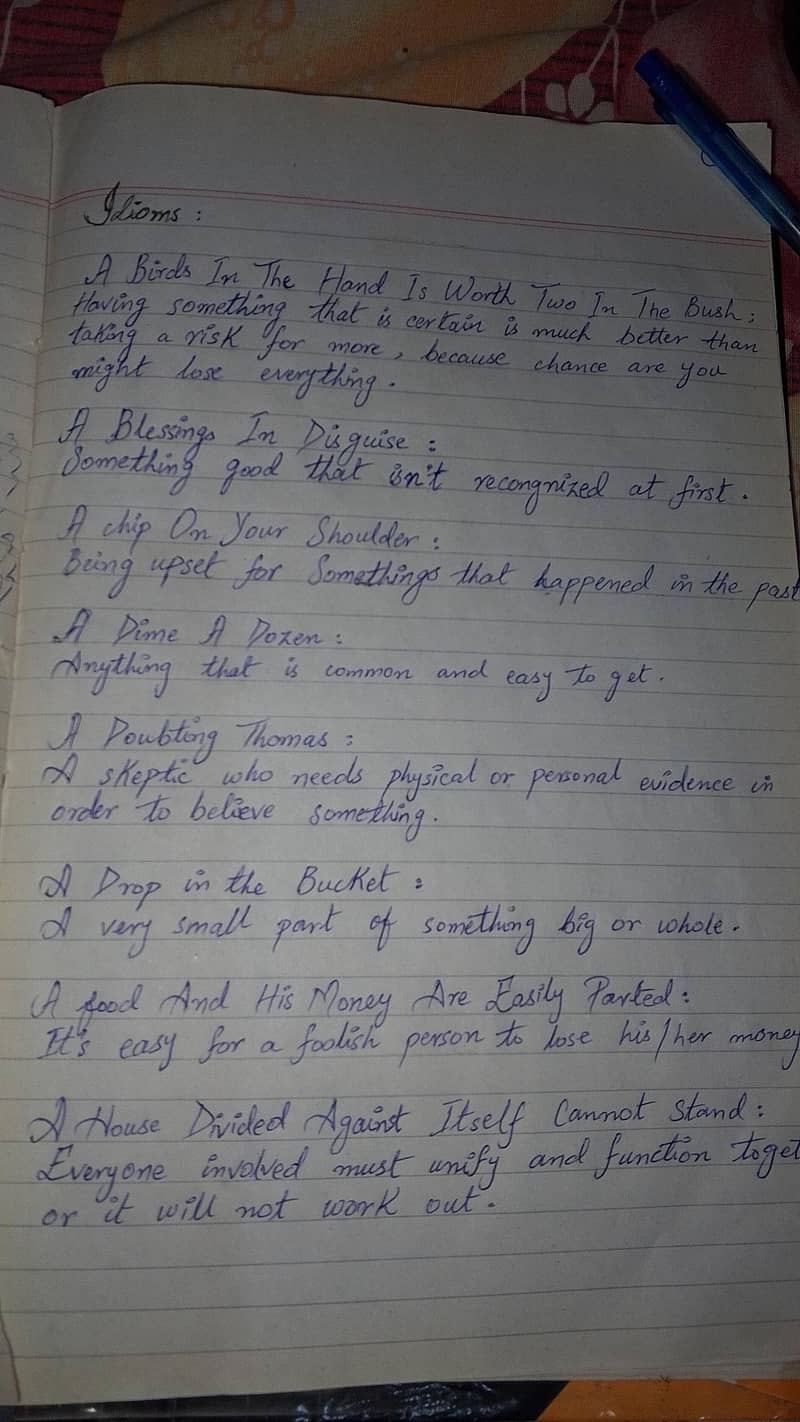 Idioms :
A Birds In The Hand Is Worth Two In The Bush :
Having something that is certain is much better than
taking a risk for more, because chance are you
might lose everything.
A Blessings In Disguise :
Something good that isn't recongnized at first.
A chip On Your Shoulder :
Being upset for Somethings that happened in the past
A Dime A Dozen :
Anything that is common and easy to get.
A Doubting Thomas :
A skeptic who needs physical or personal evidence in
order to believe something.
A Drop in the Bucket :
A very small part of something big or whole.
A food And His Money Are Easily Parted :
It's easy for a foolish person to lose his/her money
A House Divided Against Itself Cannot Stand :
Everyone involved must unify and function toget
or it will not work out.